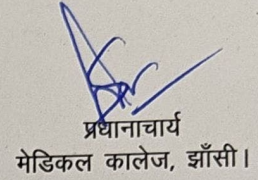 प्रधानाचार्य
मेडिकल कालेज, झाँसी।